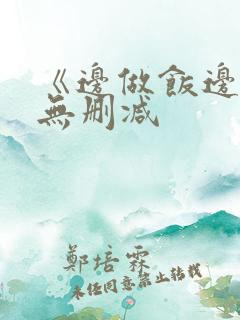 《邊做飯邊
無刪減
鄭培霖
未经同意禁止转载